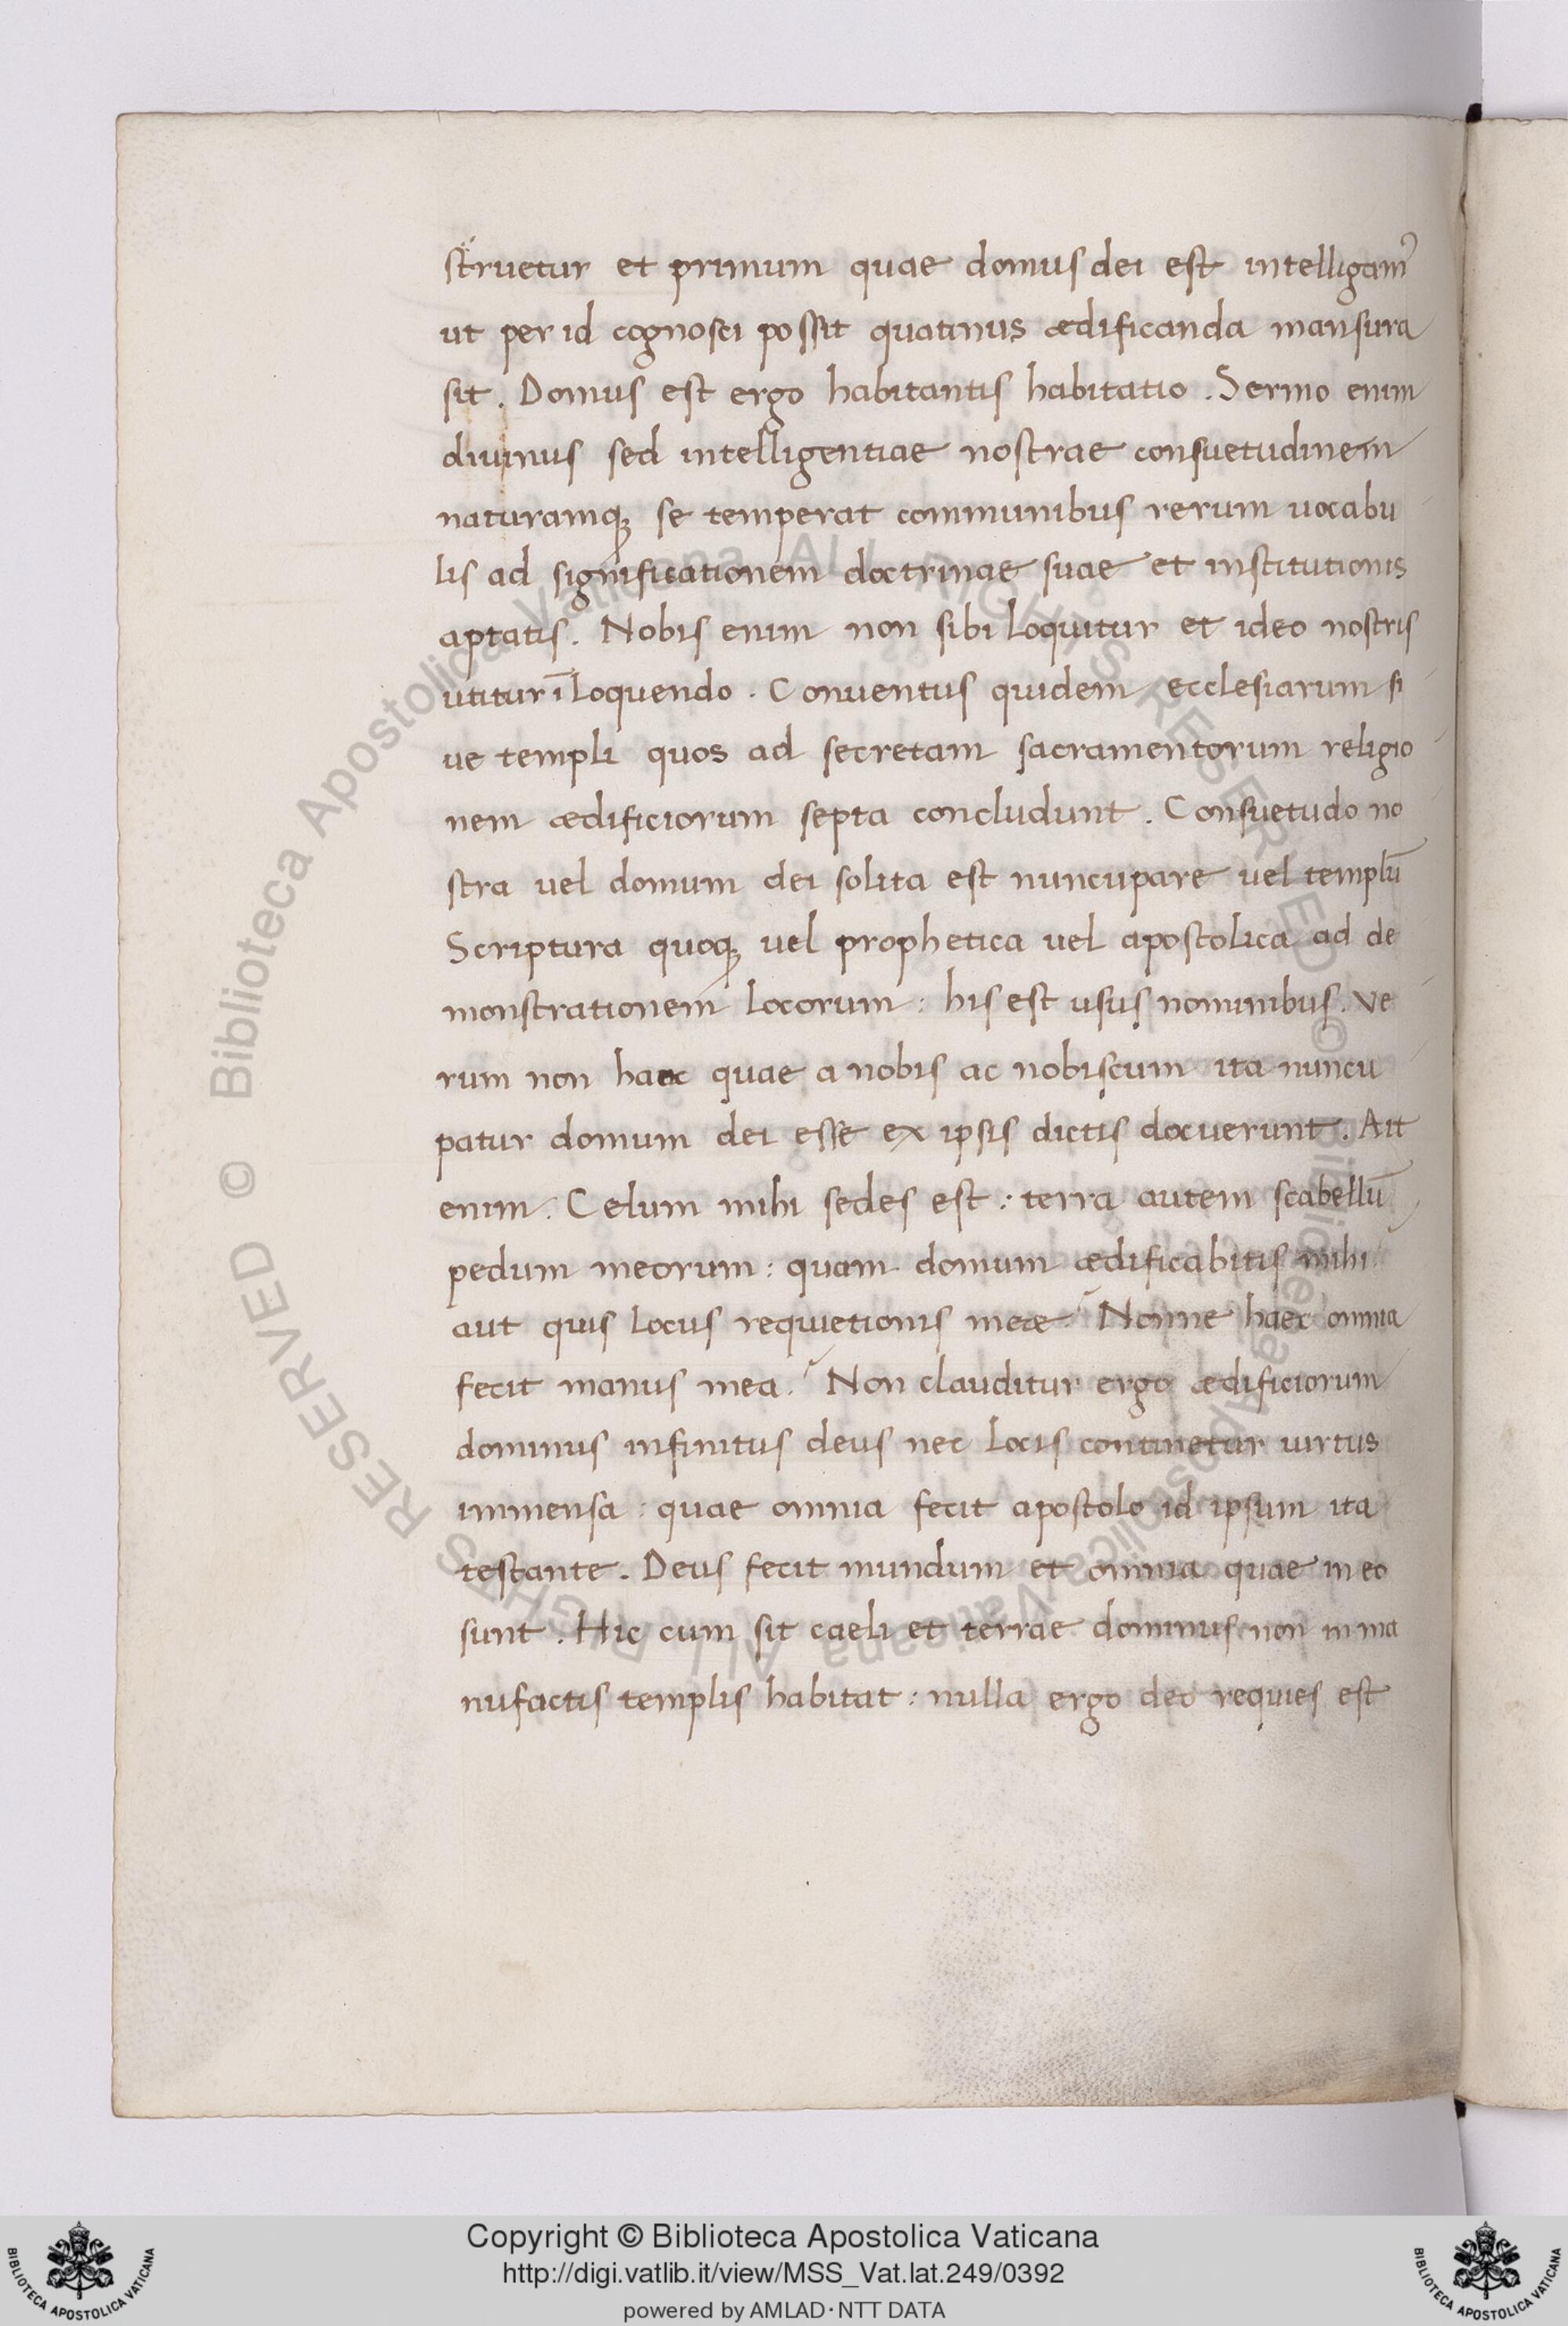 struetur et primum quae domus dei est intelligam᾽
ut per id cognosci possit quatinus ædificanda mansura
sit. Domus est ergo habitantis habitatio. Sermo enim
diuinus sed intelligentiae nostrae consuetudinem
naturamq; se temperat communibus rerum uocabu
lis ad significationem doctrinae suae et institutionis
aptatis. Nobis enim non sibi loquitur et ideo nostris
utitur ī loquendo. Conuentus quidem ecclesiarum si
ue templi quos ad secretam sacramentorum religio
nem ædificiorum septa concludunt. Consuetudo no
stra uel domum dei solita est nuncupare uel templū
Scriptura quoq; uel prophetica uel apostolica ad de
monstrationem locorum: his est usus nominibus. Ve
rum non haec quae a nobis ac nobiscum ita nuncu
patur domum dei esse ex ipsis dictis docuerunt. Ait
enim. Celum mihi sedes est: terra autem scabellū
pedum meorum: quam domum ædificabitis mihi
aut quis locus requietionis meæ? Nonne haec omnia
fecit manus mea? Non clauditur ergo ædificiorum
dominus infinitus deus nec locis continetur uirtus
immensa: quae omnia fecit apostolo id ipsum ita
testante. Deus fecit mundum et omnia quae in eo
sunt. Hic cum sit caeli et terrae dominus non in ma
nufactis templis habitat: nulla ergo deo requies est
© Biblioteca Apostolica Vaticana ALL RIGHTS RESERVED © Biblioteca Apostolica Vaticana ALL RIGHTS RESERVED
Copyright © Biblioteca Apostolica Vaticana
http://digi.vatlib.it/view/MSS_Vat.lat.249/0392
powered by AMLAD·NTT DATA
BIBLIOTECA APOSTOLICA VATICANA
BIBLIOTECA APOSTOLICA VATICANA